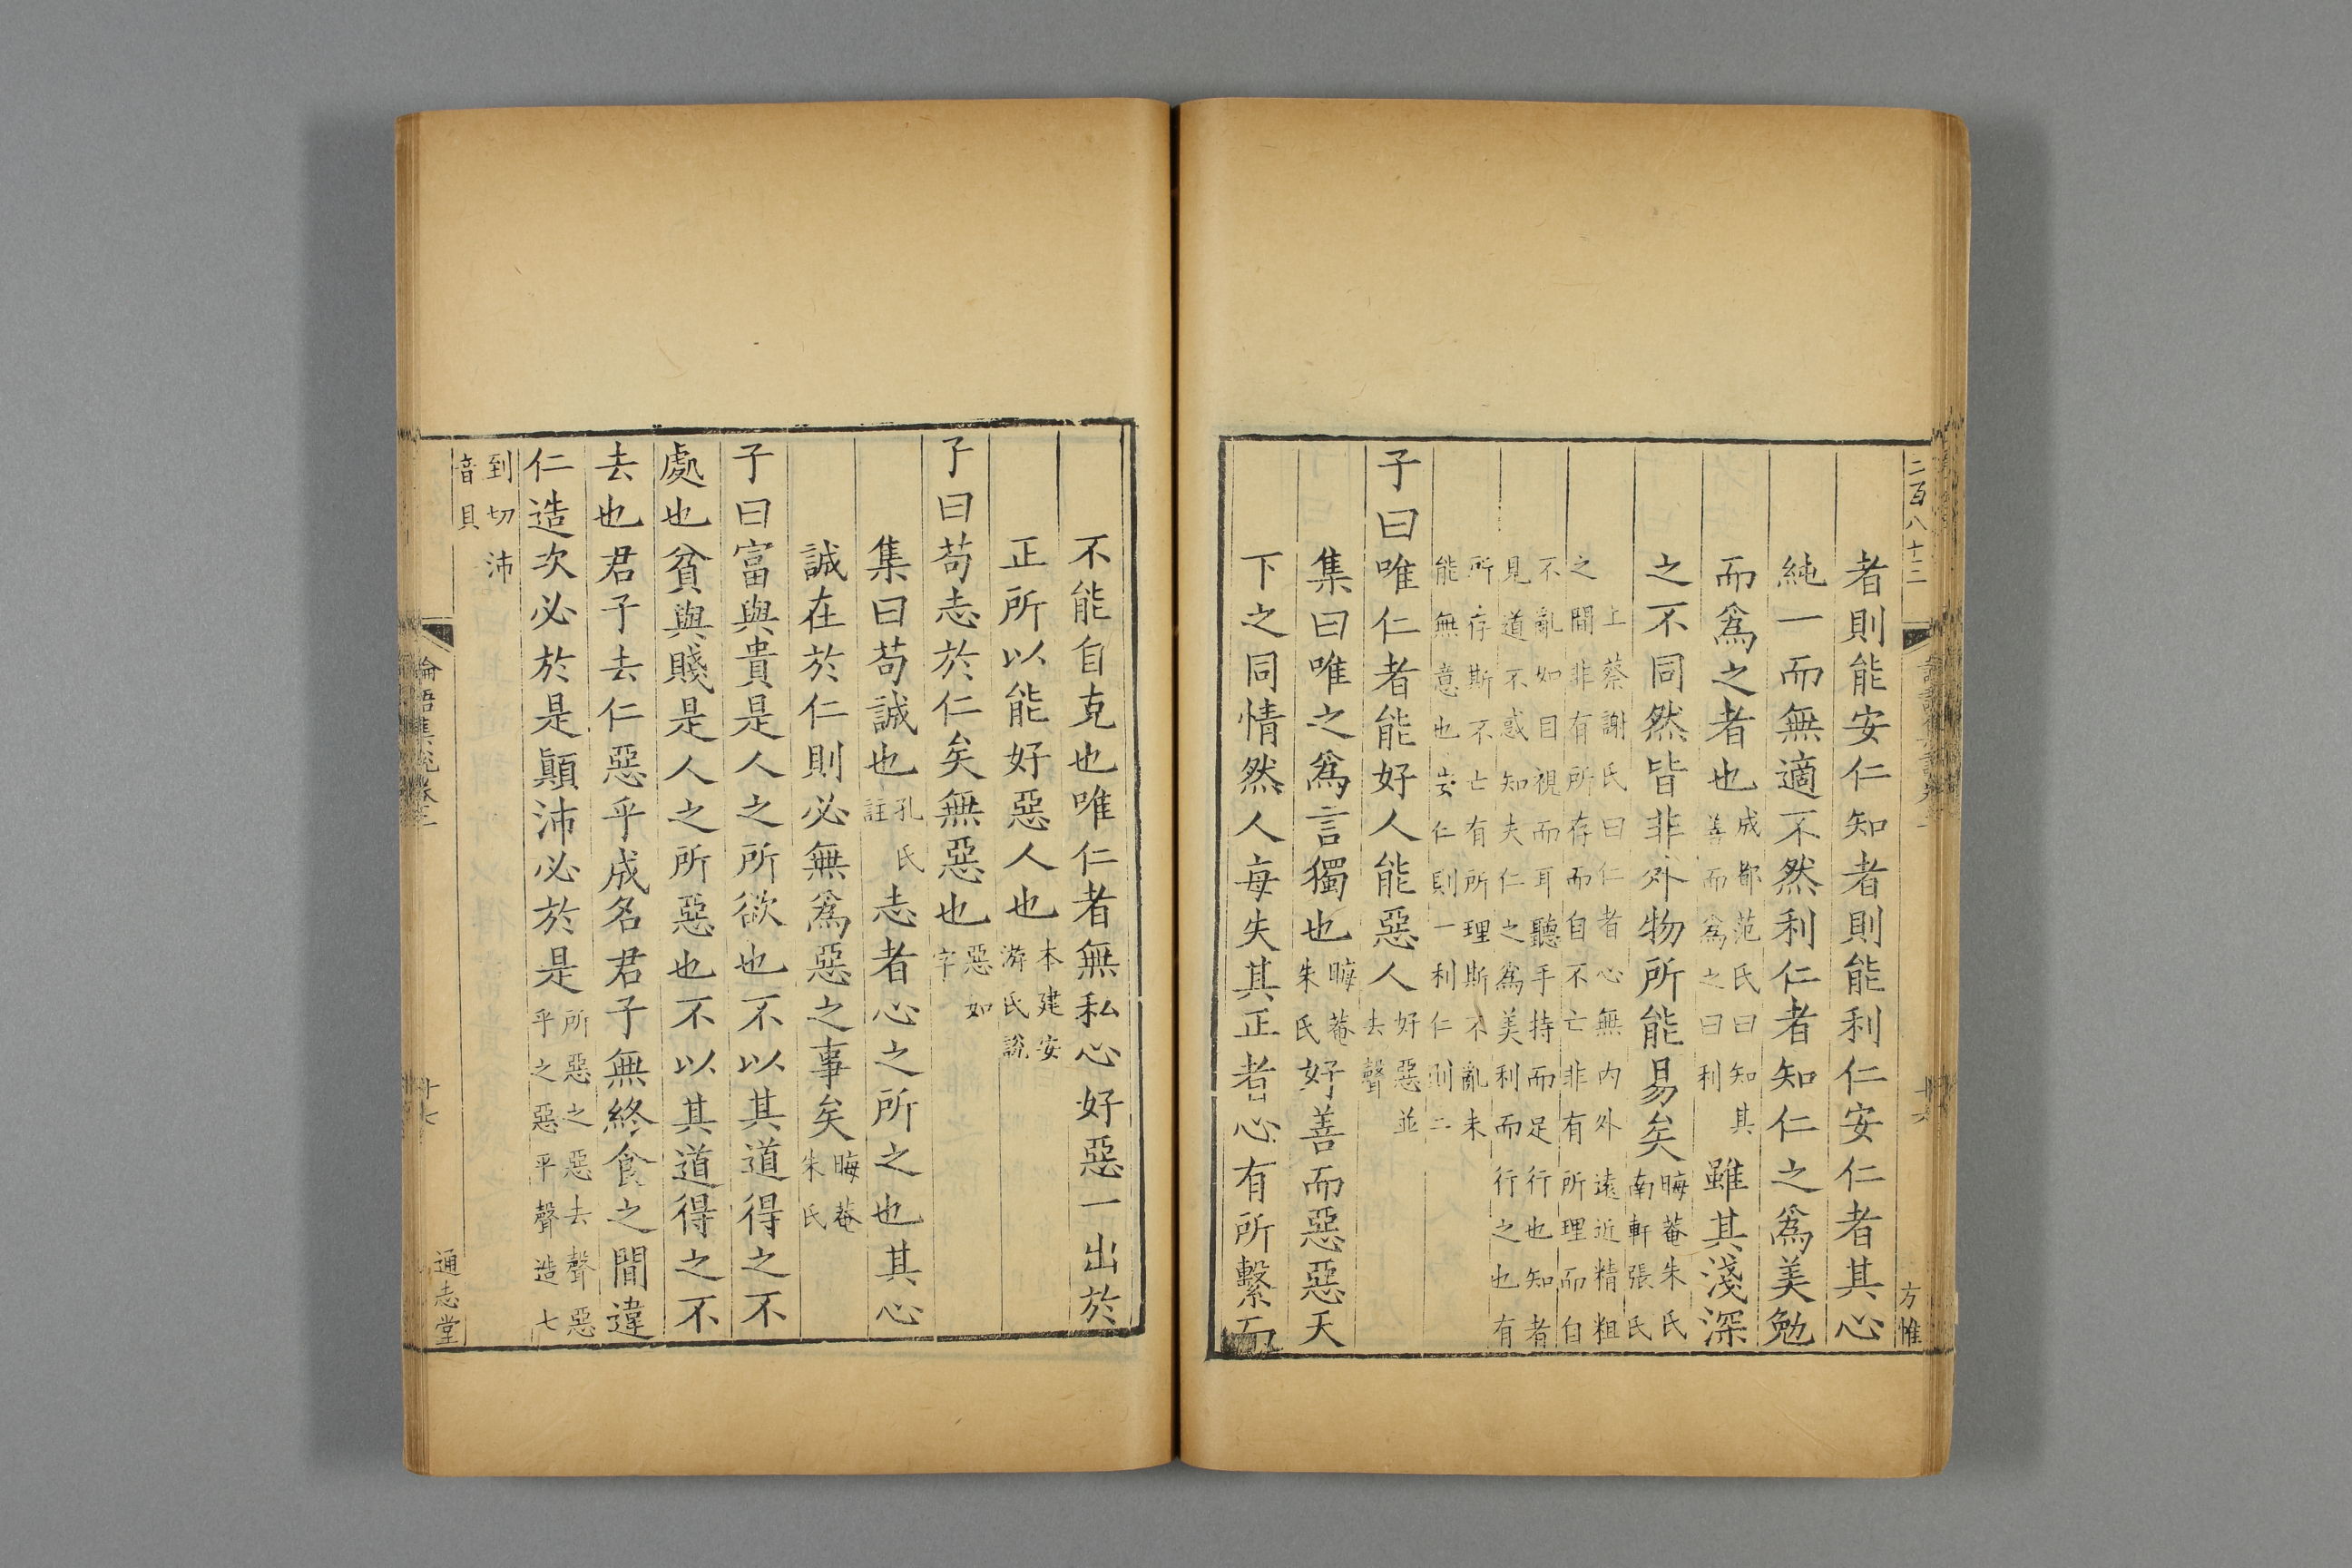 二百八十二
方惟
者則能安仁知者則能利仁安仁者其心
純一而無適不然利仁者知仁之爲美勉
而爲之者也成都范氏曰知其善而爲之曰利雖其淺深
之不同然皆非外物所能易矣晦菴朱氏南軒張氏
上蔡謝氏曰仁者心無內外遠近精粗
之間非有所存而自不亡非有所理而自
不亂如目視而耳聽手持而足行也知者
見道不惑知夫仁之爲美利而行之也有
所存斯不亡有所理斯不亂未
能無意也安仁則一利仁則二
子曰唯仁者能好人能惡人好惡並去聲
集曰唯之爲言獨也晦菴朱氏好善而惡惡天
下之同情然人每失其正者心有所繫而
不能自克也唯仁者無私心好惡一出於
正所以能好惡人也本建安游氏說
子曰苟志於仁矣無惡也惡如字
集曰苟誠也孔氏註志者心之所之也其心
誠在於仁則必無爲惡之事矣晦菴朱氏
子曰富與貴是人之所欲也不以其道得之不
處也貧與賤是人之所惡也不以其道得之不
去也君子去仁惡乎成名君子無終食之間違
仁造次必於是顚沛必於是所惡之惡去聲惡乎之惡平聲造七
到切沛音貝
論語集說卷二
十七
通志堂